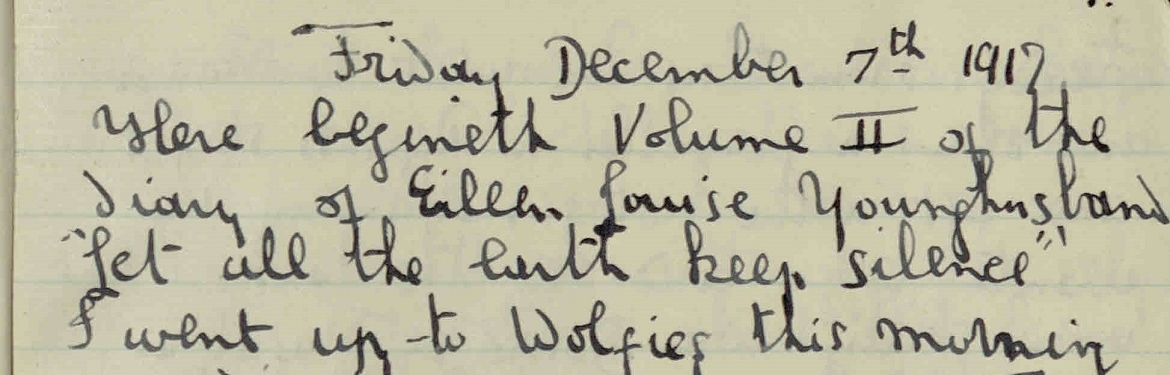 Friday December 7th 1917
Here begineth Volume II of the
diary of Eileen Louise Younghusband
"Let all the earth keep silence"
I went up to Wolfies this morning